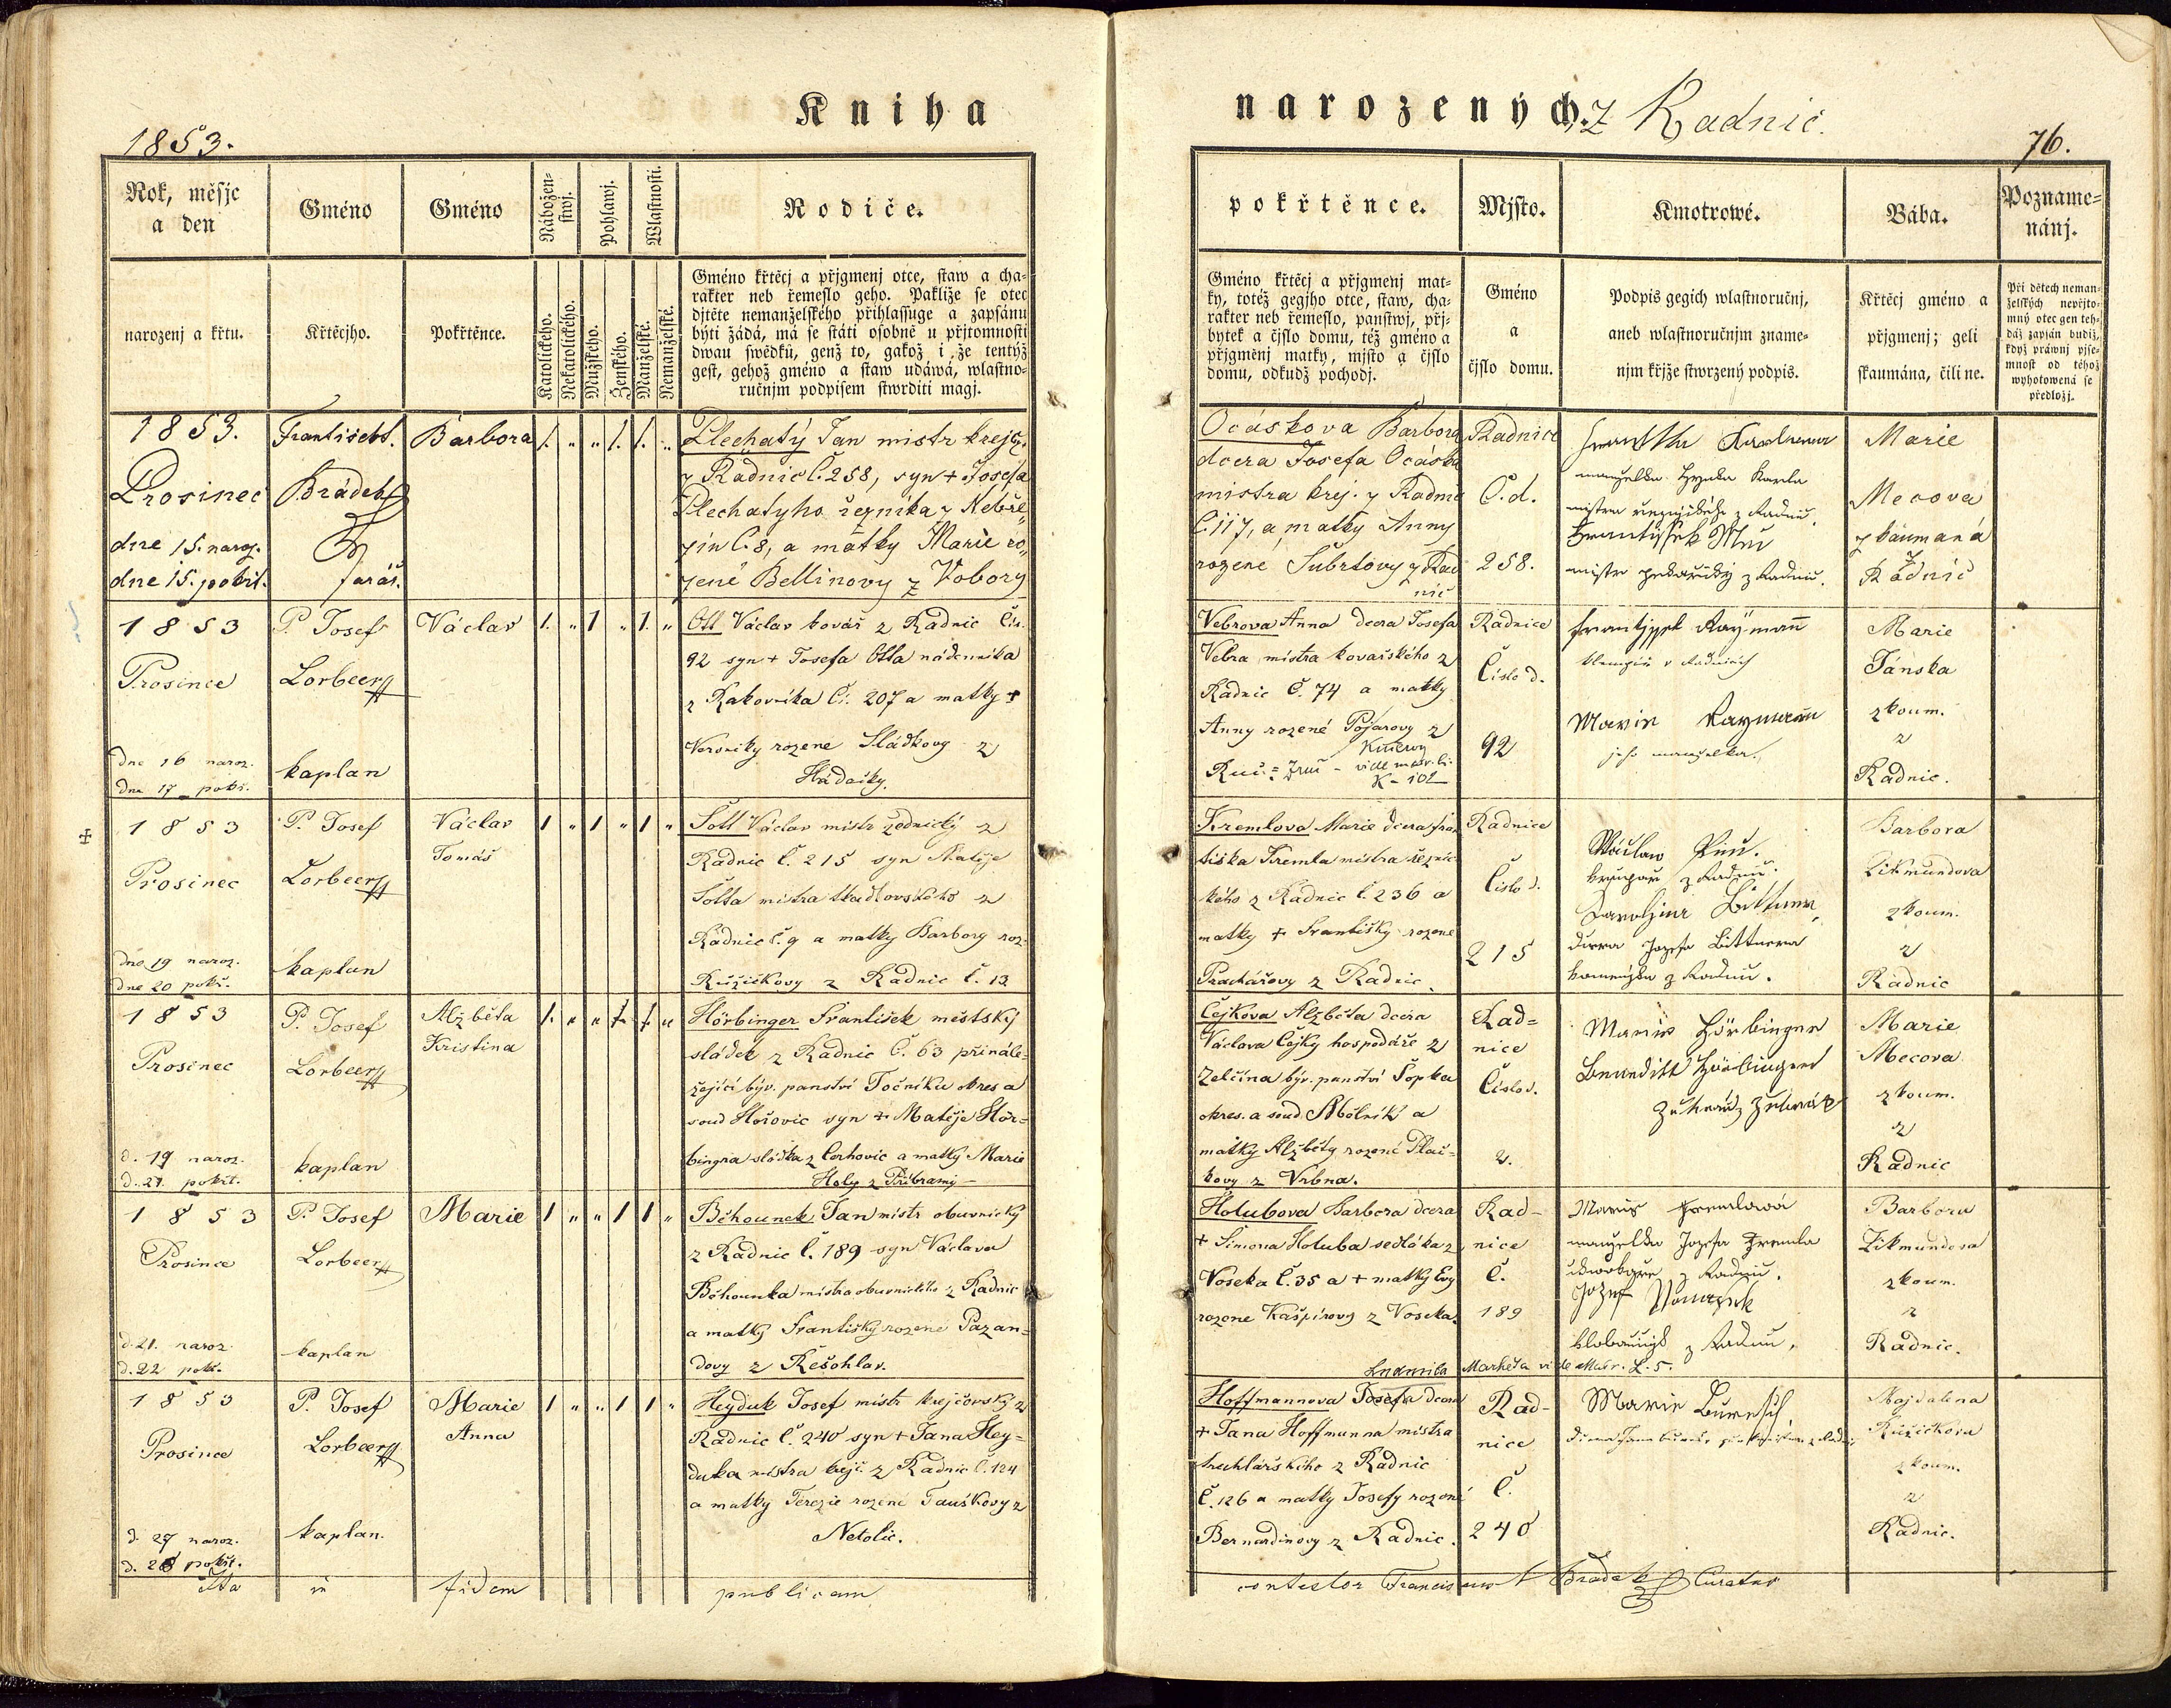 1853.
Kniha
narozených. Z Radnic.
76.
Rok, měsjc
a den
Gméno
Gméno
Nábožen-
stwj.
Pohlawj.
Wlastnosti.
Rodiče.
narozenj a křtu.
Křtěcjho.
Pokřtěnce.
Katolického.
Nekatolického.
Mužského.
Ženského.
Manželské.
Nemanželské.
Gméno křtěcj a přjgmenj otce, staw a cha-
rakter neb řemeslo geho. Pakliže se otec
djtěte nemanželského přihlassuge a zapsánu
býti žádá, má se státi osobně u přjtomnosti
dwau swědků, genž to, gakož i že tentýž
gest, gehož gméno a staw udáwá, wlastno-
ručnjm podpisem stwrditi magj.
pokřtěnce.
Mjsto.
Kmotrowé.
Bába.
Pozname=
nánj.
Gméno křtěcj a přjgmenj mat-
ky, totéž gegjho otce, staw, cha-
rakter neb řemeslo, panstwj, přj-
bytek a čjslo domu, též gméno a
přjgmenj matky, mjsto a čjslo
domu, odkudž pocházj.
Gméno
a
čjslo domu.
Podpis gegich wlastnoručnj,
aneb wlastnoručnjm zname-
njm křjže stwrzený podpis.
Křtěcj gméno a
přjgmenj; geli
skaumána, čili ne.
Při dětech neman-
želských nepřjto-
mný otec gen teh-
dáž zapsán budiž,
když práwnj pjse-
mnost od téhož
wyhotowená se
předložj.
1853.
Prosinec
dne 15. naroz.
dne 15. pokřt.
Brádek
farář.
Barbora
1. " " 1. 1. "
Plechatý Jan mistr krejčj.
z Radnic č. 258, syn + Josefa
Plechatyho řezníka z Nebře-
zin č. 8, a matky Marie ro-
zené Bellinovy z Vobory
Ocáskova Barbora
dcera Josefa Ocáska
mistra krej. z Radnic
č. 117, a matky Anny
rozené Šubrtovy z Rad
nic
Radnice
Č. d.
258.
manželka Hynka Karla
František
Marie
Mecova
zkaumaná
z
Radnic
1853
Prosince
dne 16 naroz.
dne 17 pokř.
P. Josef
Lorbeer
kaplan
Václav
1. " 1 " 1. "
Ott Václav kovář z Radnic Čís.
92 syn + Josefa Otta nádenníka
z Rakovníka Čí. 207 a matky +
Veroniky rozene Sládkovy z
Hůdačky.
Vebrova Anna dcera Josefa
Vebra mistra kovařského z
Radnic Č. 74 a matky
Anny rozené Pojarovy z
K-102
Radnice
Číslo d.
92
v Radnicích
Marie Raymann
jeho manželka.
Marie
Jánska
zkoum.
z
Radnic.
1853
Prosinec
dne 19 naroz.
dne 20 pokř.
P. Josef
Lorbeer
kaplan
Václav
Tomáš
1 " 1 " 1 "
Šott Václav mistr zednický z
Radnic č. 215 syn Matěje
Šotta mistra tkadlovského z
Radnic č. 9 a matky Barbory roz.
Růžičkovy z Radnic č. 13
Kremlova Marie dcera Fran
tiška Kremla mistra řeznic-
kého z Radnic č. 236 a
matky + Františky rozené
Prachářovy z Radnic.
Radnice
Číslo d.
215
Václaw
z Radnic.
Karolina Bittner,
dcera Josefa Bittnera
z Radnic.
Barbora
Zikmundova
zkoum.
z
Radnic
1853
Prosinec
d. 19 naroz.
d. 21. pokřt.
P. Josef
Lorbeer
kaplan
Alžběta
Kristina
1. " " 1. 1. "
Hörbinger František městský
sládek z Radnic č. 63 přinále-
žející býv. panství Točníku okres a
soud Hořovic syn + Matěje Hör-
bingra sládka z Cerhovic a matky Marie
Holy z Příbrami
Čejkova Alžběta dcera
Václava Čejky hospodáře z
Zelčína býv. panství Šopka
okres. a soud Mělník a
matky Alžběty rozené Plač-
kovy z Vrbna.
Rad=
nice
Číslo d.
2.
Marie Hörbinger
Benedikt Hörbinger
Marie
Mecova
zkoum.
z
Radnic
1853
Prosince
d. 21. naroz.
d. 22 pokř.
P. Josef
Lorbeer
kaplan
Marie
1 " " 1 1 "
Běhounek Jan mistr obuvnický
z Radnic č. 189 syn Václava
Běhounka mistra obuvnického z Radnic
a matky Františky rozené Pazan-
dovy z Řešohlav.
Holubova Barbora dcera
+ Šimona Holuba sedláka z
Voseka č. 35 a + matky Evy
rozene Kašpírovy z Voseka.
Rad-
nice
č.
189
Marie Kremlowá
manželka Jozefa Kremla
z Radnic.
Jozef
z Radnic.
Barbora
Zikmundova
zkoum.
z
Radnic.
Ludmila Markéta vide Matr. L. 5.
1853
Prosince
d. 27 naroz.
d. 28 pokřt.
P. Josef
Lorbeer
kaplan.
Marie
Anna
1 " " 1 1 "
Heyduk Josef mistr krejčovský z
Radnic č. 240 syn + Jana Hey-
duka mistra krejč. z Radnic č. 124
a matky Terezie rozené Fauskovy z
Netolic.
Hoffmannova Josefa dcera
+ Jana Hoffmanna mistra
truhlářského z Radnic
č. 126 a matky Josefy rozené
Bernardinovy z Radnic.
Rad-
nice
č.
240
Marie Buresch,
Majdalena
Růžičkova
zkoum.
z
Radnic.
Ita in fidem publicam
contestor Franciscus Bradek Curatus